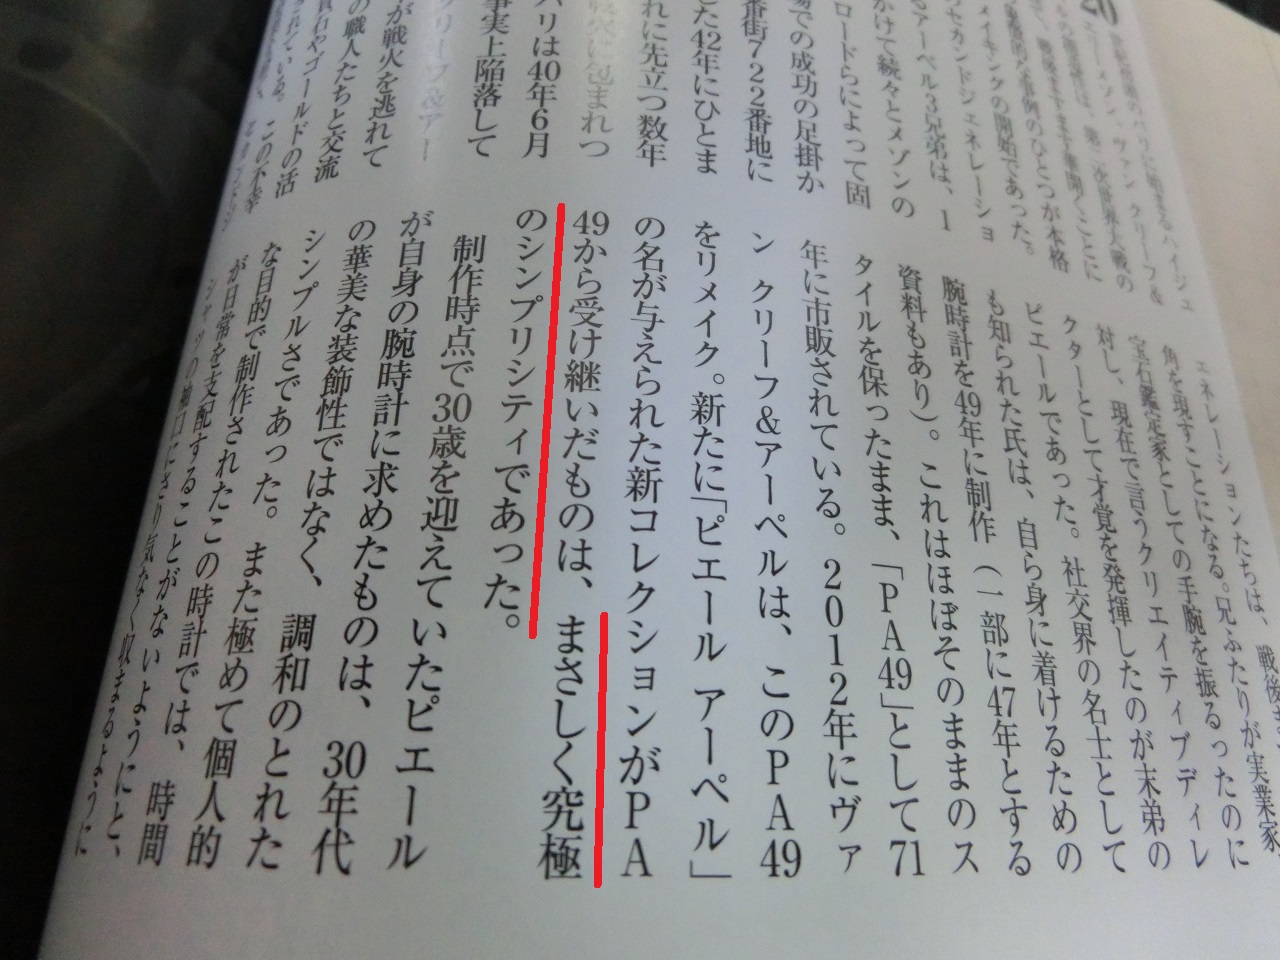 20
世紀初頭のパリに始まるハイジュ
メゾン、ヴァン クリーフ&
第二次世界大戦の
戦後ますます華開くことに
象徴的な事例のひとつが本格
メイキングの開始であった。
のセカンドジェネレーショ
るアーペル3兄弟は、1
かけて続々とメゾンの
ロードらによって固
場での成功の足掛か
番街722番地に
した42年にひとま
れに先立つ数年
戦火に包まれつ
パリは40年6月
事実上陥落して
クリーフ&アー
が戦火を逃れて
の職人たちと交流
貴石やゴールドの活
られている。この不幸
エネレーションたちは、戦後
角を現すことになる。兄ふたりが実業家
宝石鑑定家としての手腕を振るったのに
対し、現在で言うクリエイティブディレ
クターとして才覚を発揮したのが末弟の
ピエールであった。社交界の名士として
も知られた氏は、自ら身に着けるための
腕時計を49年に制作(一部に47年とする
資料もあり)。これはほぼそのままのス
タイルを保ったまま、「PA49」として71
年に市販されている。2012年にヴァ
ン クリーフ&アーペルは、このPA49
をリメイク。新たに「ピエール アーペル」
の名が与えられた新コレクションがPA
49から受け継いだものは、まさしく究極
のシンプリシティであった。
制作時点で30歳を迎えていたピエール
が自身の腕時計に求めたものは、30年代
の華美な装飾性ではなく、調和のとれた
シンプルさであった。また極めて個人的
な目的で制作されたこの時計では、時間
が日常を支配することがないようにと、
シャツの袖口にさり気なく収まるように